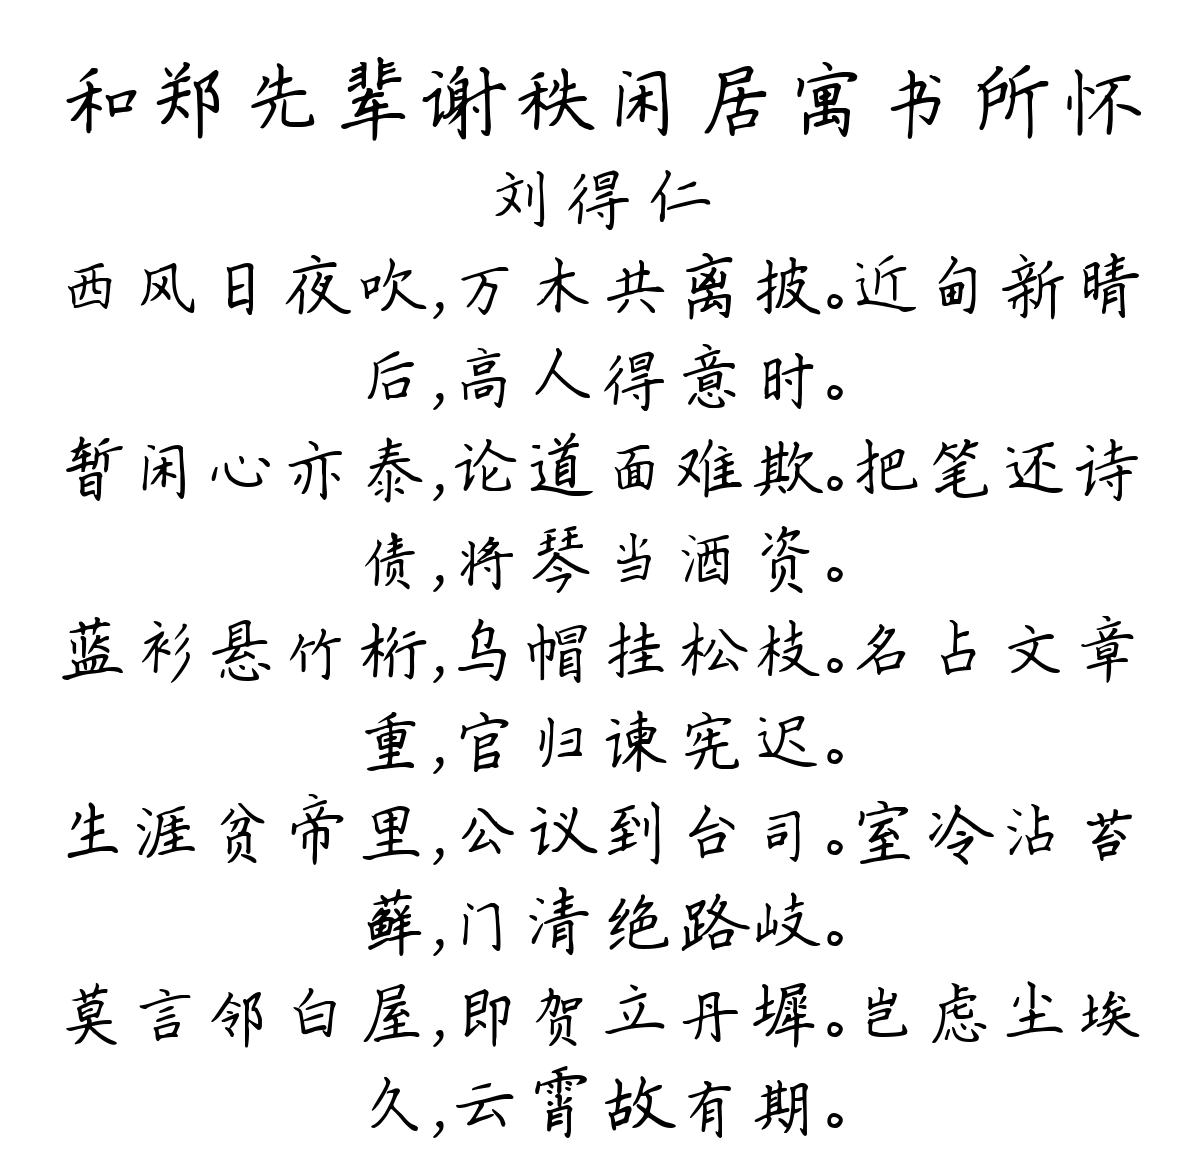 和郑先辈谢秩闲居寓书所怀
刘得仁
西风日夜吹,万木共离披。近甸新晴
后,高人得意时。
暂闲心亦泰,论道面难欺。把笔还诗
债,将琴当酒资。
蓝衫悬竹桁,乌帽挂松枝。名占文章
重,官归谏宪迟。
生涯贫帝里,公议到台司。室冷沾苔
藓,门清绝路岐。
莫言邻白屋,即贺立丹墀。岂虑尘埃
久,云霄故有期。